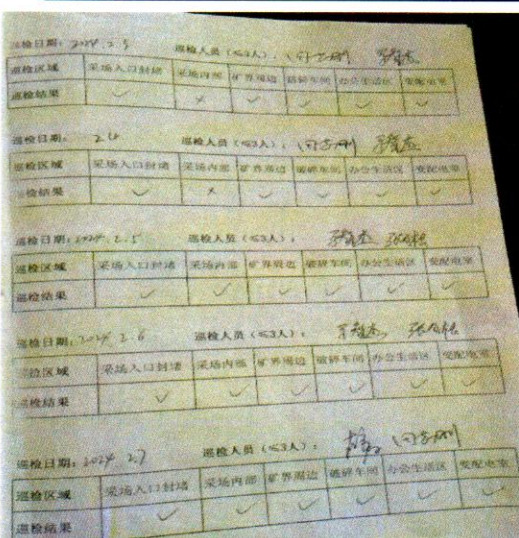 巡检日期：2024.2.3 巡检人员（≤3人）：闫志刚
巡检区域 采场入口封堵 采场内部 矿界周边 破碎车间 办公生活区 变配电室
巡检结果 ✓ × ✓ ✓ ✓ ✓
巡检日期： 2.4 巡检人员（≤3人）：闫志刚
巡检区域 采场入口封堵 采场内部 矿界周边 破碎车间 办公生活区 变配电室
巡检结果 ✓ × ✓ ✓ ✓ ✓
巡检日期：2024.2.5 巡检人员（≤3人）：
巡检区域 采场入口封堵 采场内部 矿界周边 破碎车间 办公生活区 变配电室
巡检结果 ✓ ✓ ✓ ✓ ✓ ✓
巡检日期：2024.2.6 巡检人员（≤3人）：
巡检区域 采场入口封堵 采场内部 矿界周边 破碎车间 办公生活区 变配电室
巡检结果 ✓ ✓ ✓ ✓ ✓ ✓
巡检日期：2024.2.7 巡检人员（≤3人）： 闫志刚
巡检区域 采场入口封堵 采场内部 矿界周边 破碎车间 办公生活区 变配电室
巡检结果 ✓ ✓ ✓ ✓ ✓ ✓